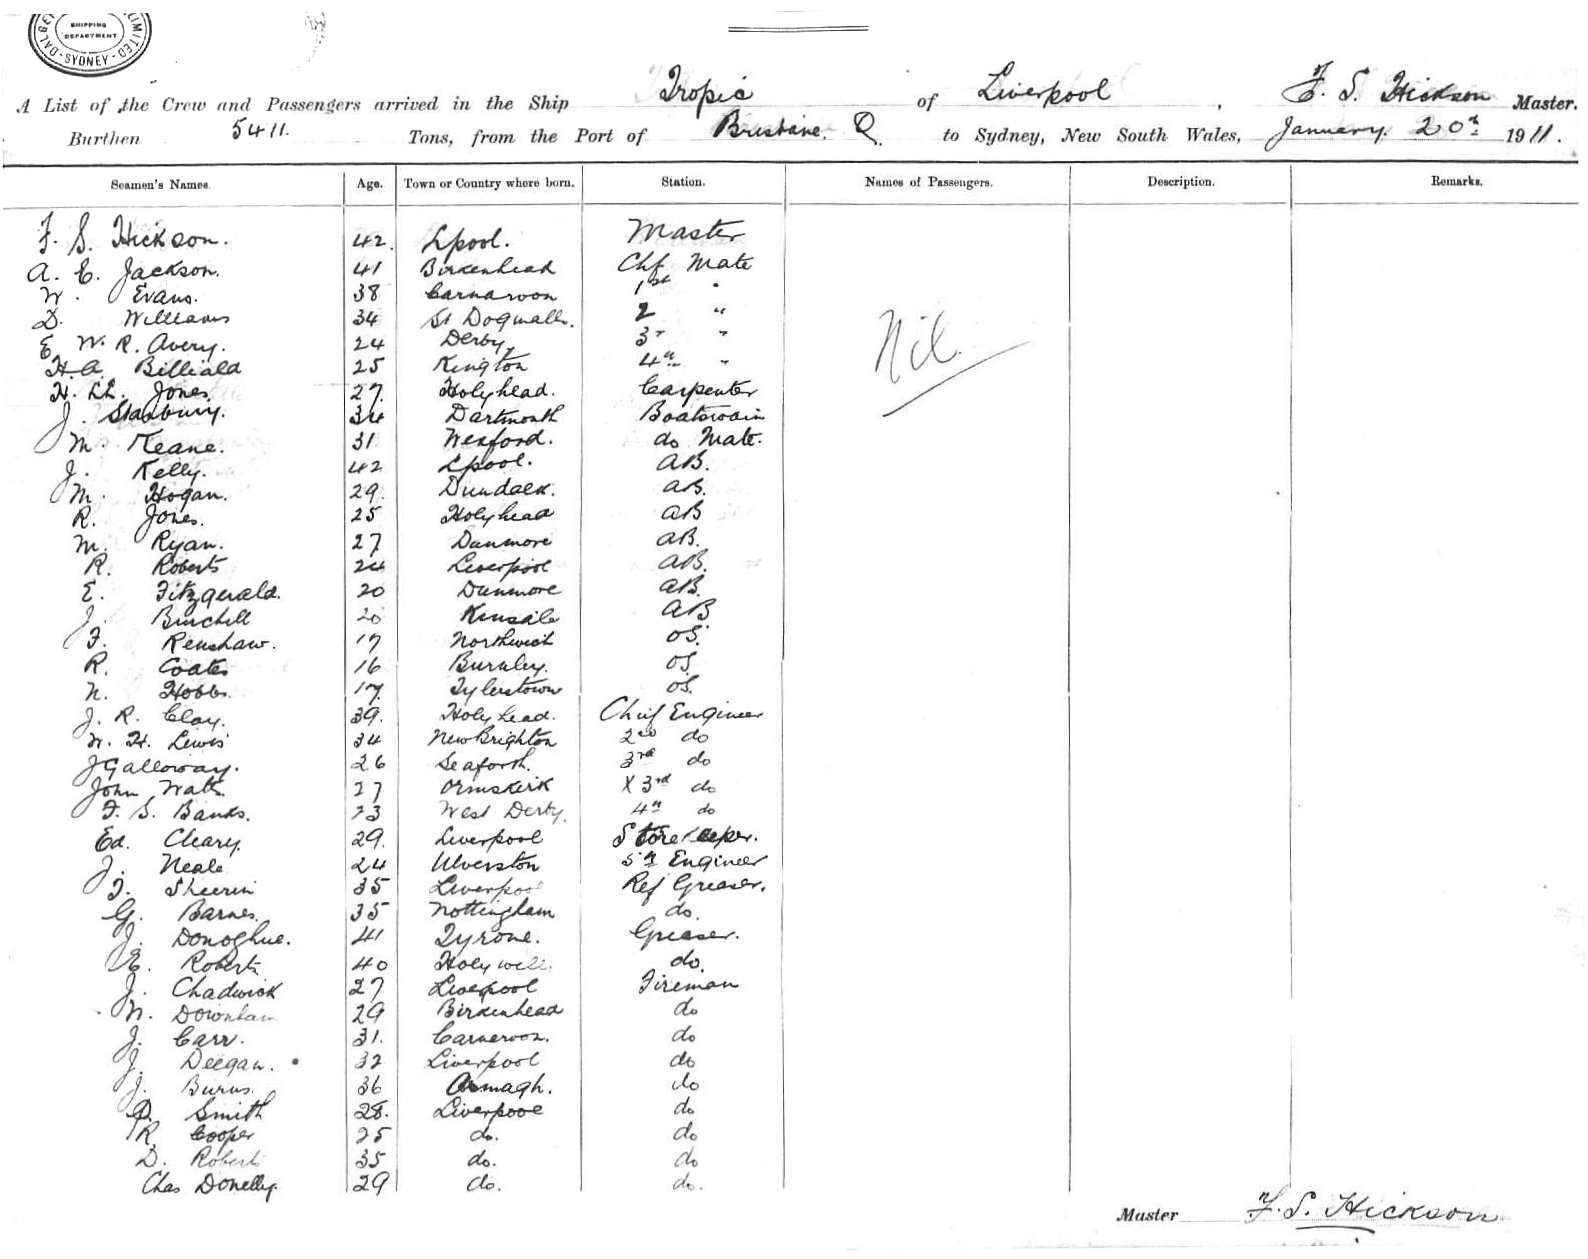 SHIPPING
DEPARTMENT
SYDNEY
LIMITED
A List of the Crew and Passengers arrived in the Ship Tropic of Liverpool, F. S. Hickson Master.
Burthen 5411. Tons, from the Port of Brisbane Q to Sydney, New South Wales, January 20th 1911.
Seamen's Names. Age. Town or Country where born. Station. Names of Passengers. Description. Remarks.
F. S. Hickson. 42. Lpool. Master
A. C. Jackson. 41 Birkenhead Chf Mate
W. Evans. 38 Carnarvon 1st "
D. Williams 34 St Dogmalls. 2 "
E. W. R. Avery. 24 Derby 3r "
H. A. Billiald 25 Kington 4th "
Nil.
H. Ll. Jones 27. Holyhead. Carpenter
J. Stanbury. 34 Dartmouth Boatswain
M. Keane. 31 Wexford. do Mate.
J. Kelly. 42 Lpool. AB.
M. Hogan. 29 Dundalk. AB.
R. Jones. 25 Holyhead AB
M. Ryan. 27 Dunmore AB.
R. Roberts 24 Liverpool AB.
E. Fitzgerald. 20 Dunmore AB.
J. Burchell 20 Kinsale AB
F. Renshaw. 17 Northwich OS.
R. Coates 16 Burnley. OS.
N. Hobbs. 17. Tylerstown OS.
J. R. Clay. 39. Holyhead. Chief Engineer
W. H. Lewis 34 New Brighton 2nd do
J Galloway. 26 Seaforth. 3rd do
John Watt 27 Ormskirk X 3rd do
F. S. Banks. 23 West Derby. 4th do
Ed. Cleary. 29. Liverpool Storekeeper.
J. Neale 24 Ulverston 5th Engineer
J. Sheerin 35 Liverpool Ref Greaser.
G. Barnes. 35 Nottingham do.
J. Donoghue. 41 Tyrone. Greaser.
E. Roberts 40 Holywell. do.
J. Chadwick 27 Liverpool Fireman
W. Downham 29 Birkenhead do
J. Carr. 31. Carnervon. do
J. Deegan. 32 Liverpool do
J. Burns. 36 Armagh. do
P. Smith 28. Liverpool do
R. Cooper 25 do. do
D. Roberts 35 do. do
Chas Donelly. 29 do. do.
Master F. S. Hickson